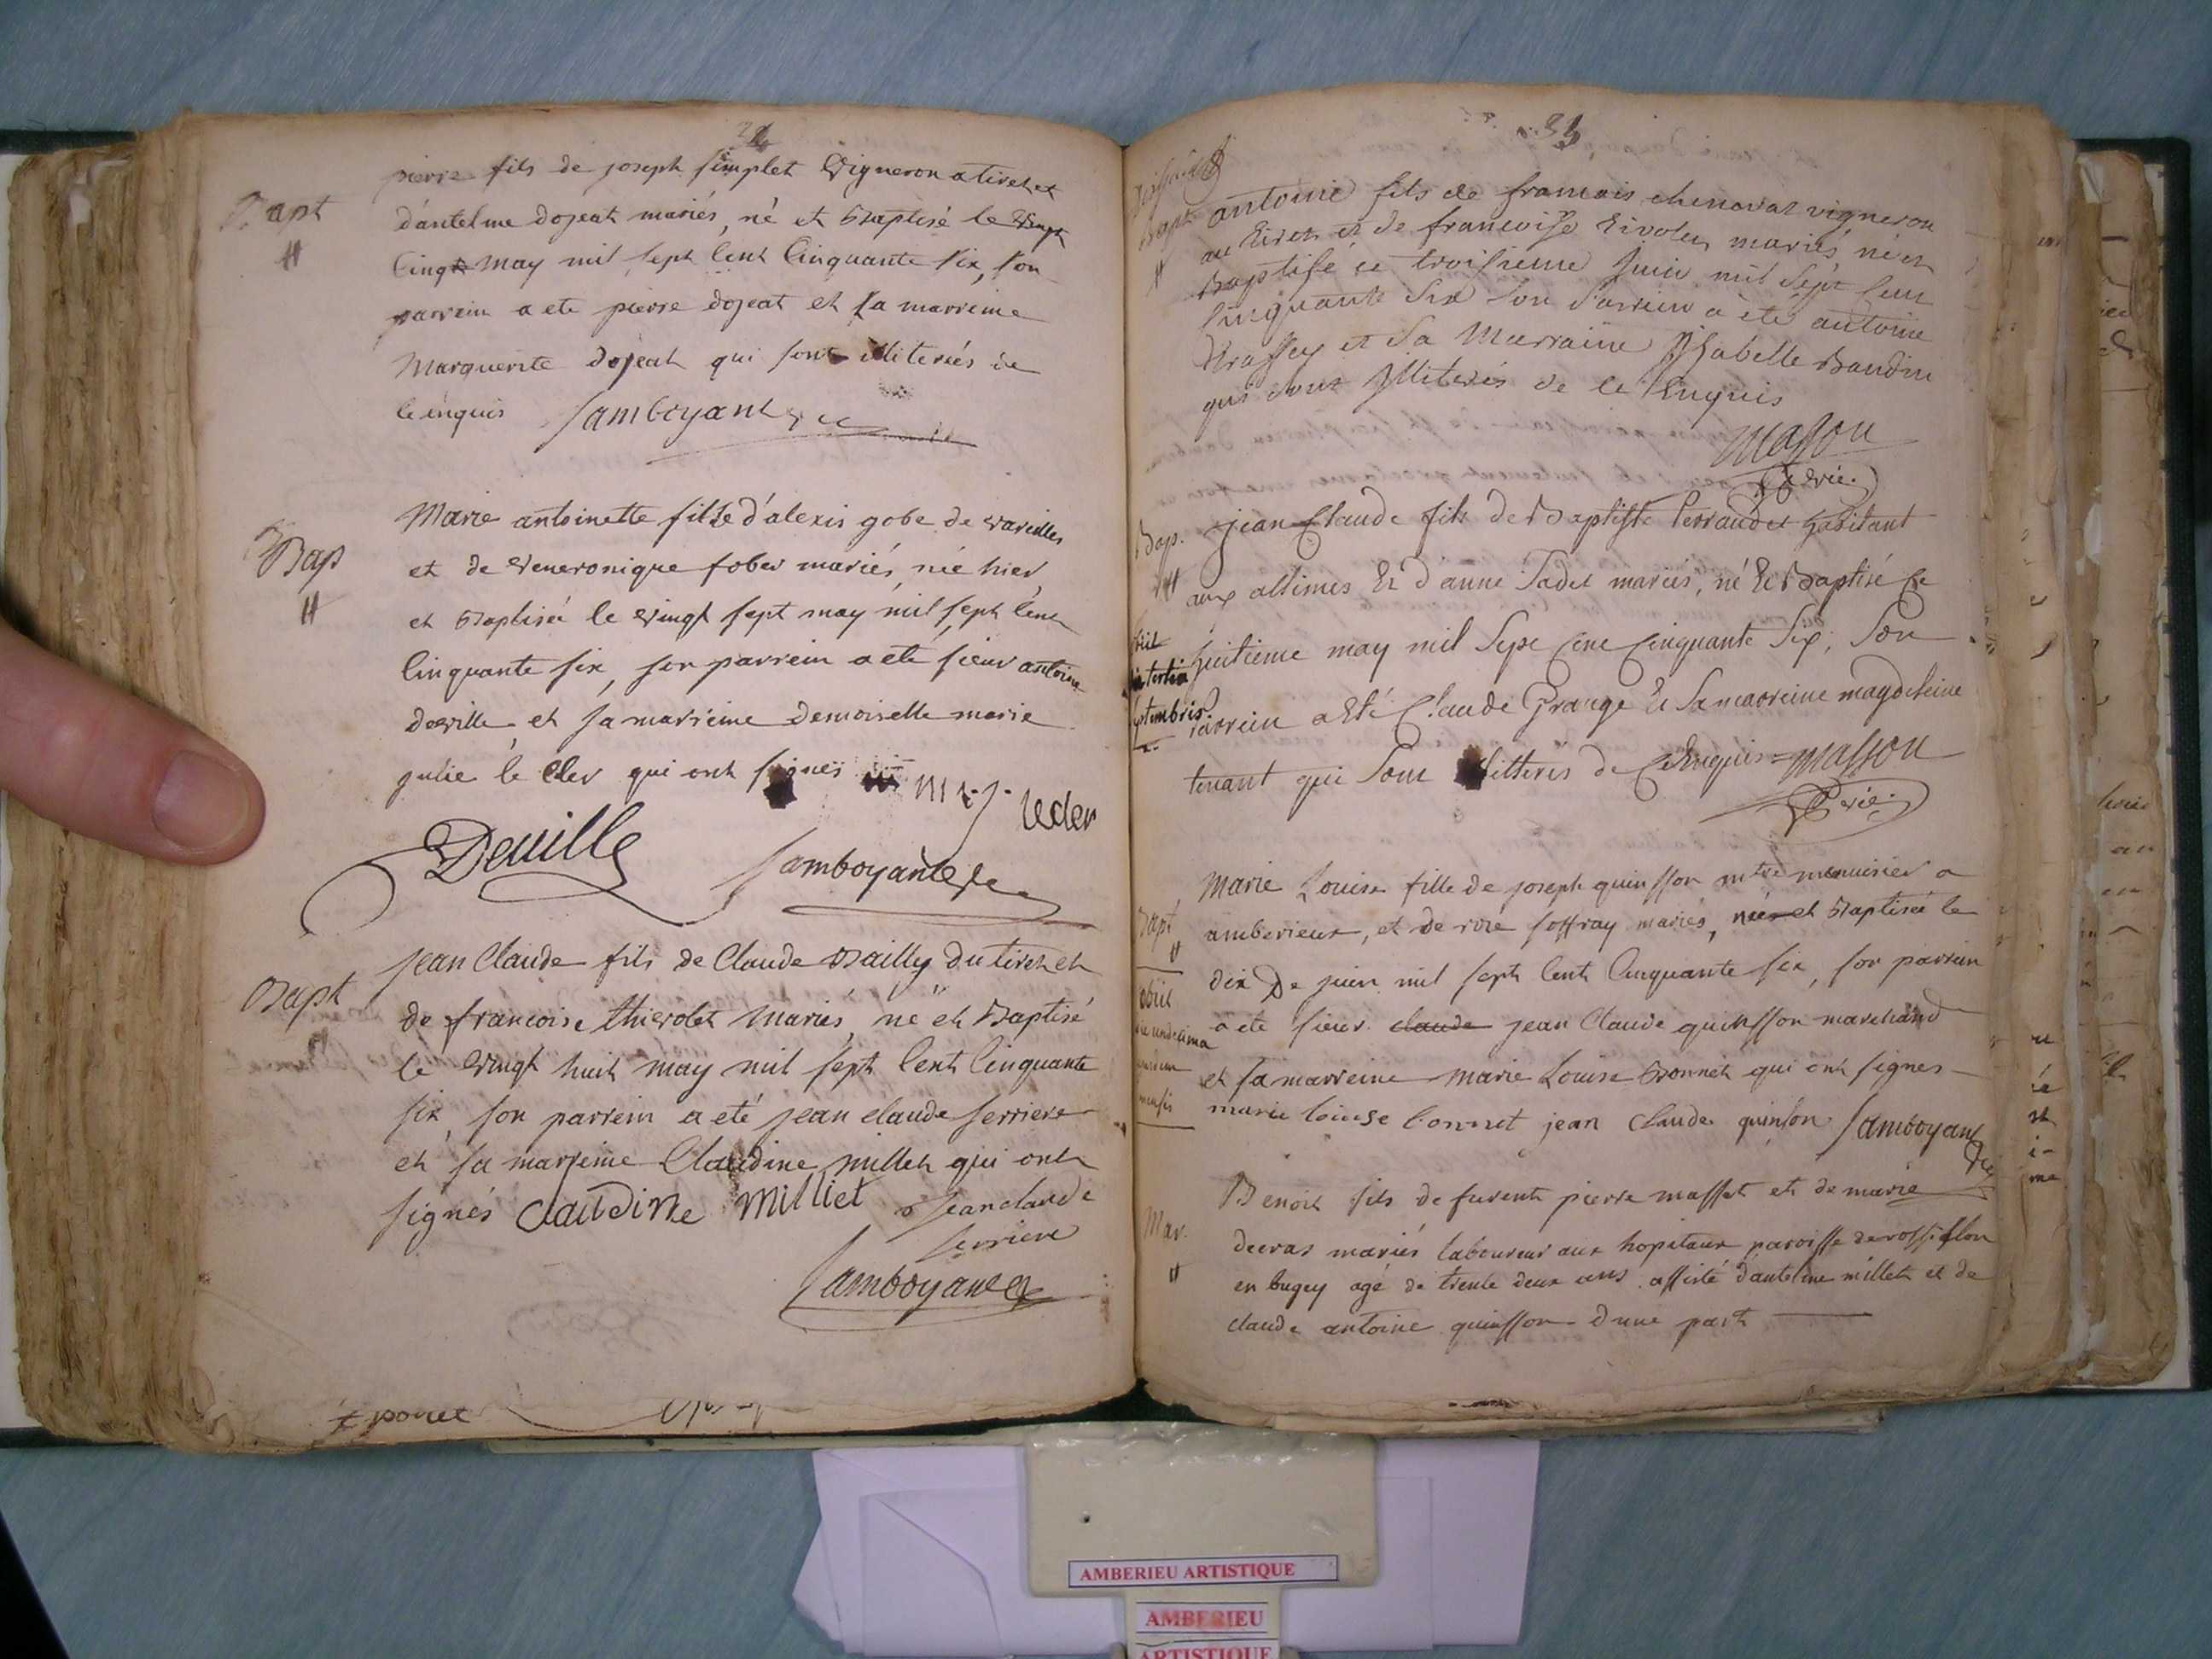 Bapt
pierre fils de joseph simplet vigneron a tiret et
d'antelme dojeat mariés, né et Baptisé le vingt
cinq may mil sept cent cinquante six, son
parrein a eté pierre dojeat et sa marreine
Marguerite dojeat qui sont illiterés de
ce enquis Jamboyant
Bap
Marie antoinette fille d'alexis gobe de vareilles
et de veneronique fober mariés, née hier
et Baptisée le vingt sept may mil sept cent
cinquante six, son parrein a eté sieur antoine
deville et sa marreine demoiselle marie
julie le Cler qui ont signés m. j. lecler
Deville Jamboyant
Bapt
jean Claude fils de Claude Bailly du tiret et
de francoise thierolet mariés, né et Baptisé
le vingt huit may mil sept cent cinquante
six, son parrein a eté jean claude serriere
et sa marreine Claudine millet qui ont
signés Claudine Milliet Jean claude
serriere
Jamboyant
34
Bapt
antoine fils de francois chenavat vigneron
au tiret et de francoise tivolet mariés, né et
Baptisé ce troisieme juin mil Sept Cent
cinquante Six Son Parrein a eté antoine
et Sa Marraine Isabelle Baudin
qui sont Illiterés de ce Enquis
Masson
Vic.
Bap.
jean Claude fils de Baptiste Perraudet habitant
aux allimes Et d'anne Tadet mariés, né Et Baptisé Ce
huitieme may mil Sept Cent Cinquante Six, Son
Parrein a Eté Claude Grange Et Sa marreine magdeleine
tenant qui Sont Illitterés de Ce Enquis = Masson
Vic.
obiit
tertia
septembris
Bapt
Marie Louise fille de joseph quinsson mtre menuisier a
amberieux, et de rose soffray mariés, née et Baptisée le
dix De juin mil sept cent cinquante six, son parrein
a eté sieur claude jean Claude quinsson marchand
et sa marreine marie Louise Bonnet qui ont signes
marie louise bonnet jean Claude quinson Jamboyant
obiit
die undecima
mensis
Mar.
Benoit fils de furent pierre masset et de marie
decras mariés laboureur aux hopitaux paroisse de rossillon
en bugey agé de trente deux ans assisté d'antelme millet et de
claude antoine quinsson d'une part
AMBERIEU ARTISTIQUE
AMBERIEU
ARTISTIQUE